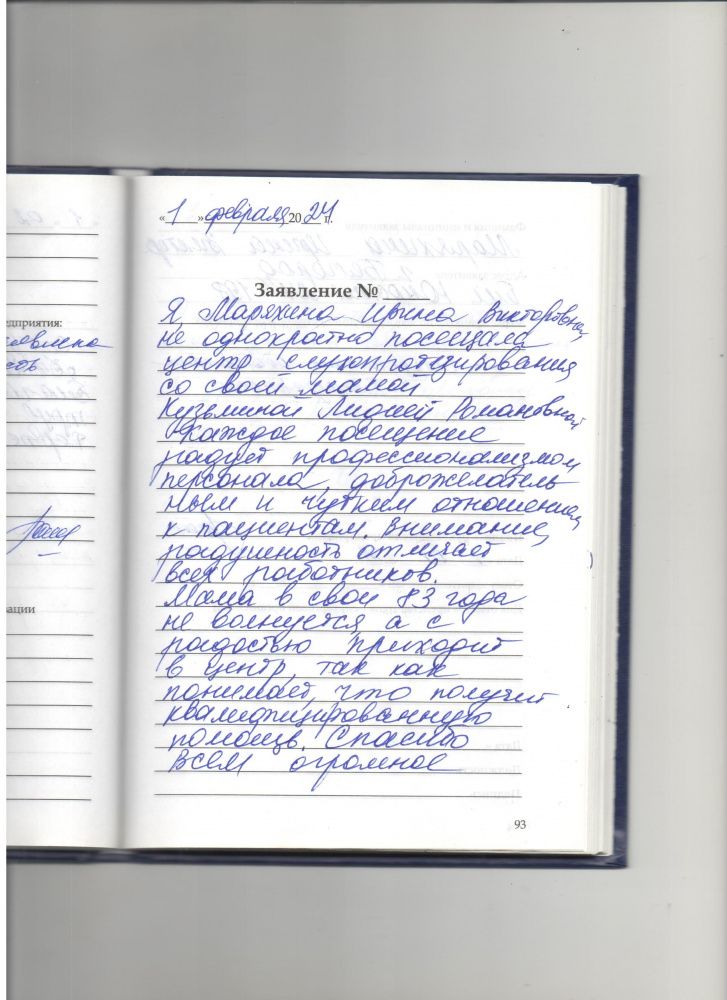 « 1 » февраля 2024 г.
Заявление № ____
Я, Маряхина Ирина Викторовна
не однократно посещала
центр слухопротезирования
со своей мамой
Кузьминой Лидией Романовной
Каждое посещение
радует профессионализмом
персонала, доброжелатель
ным и чутким отношением
к пациентам. Внимание,
радушность отличает
всех работников.
Мама в свои 83 года
не волнуется, а с
радостью приходит
в центр, так как
понимает, что получит
квалифицированную
помощь. Спасибо
всем огромное
93
едприятия:
зации